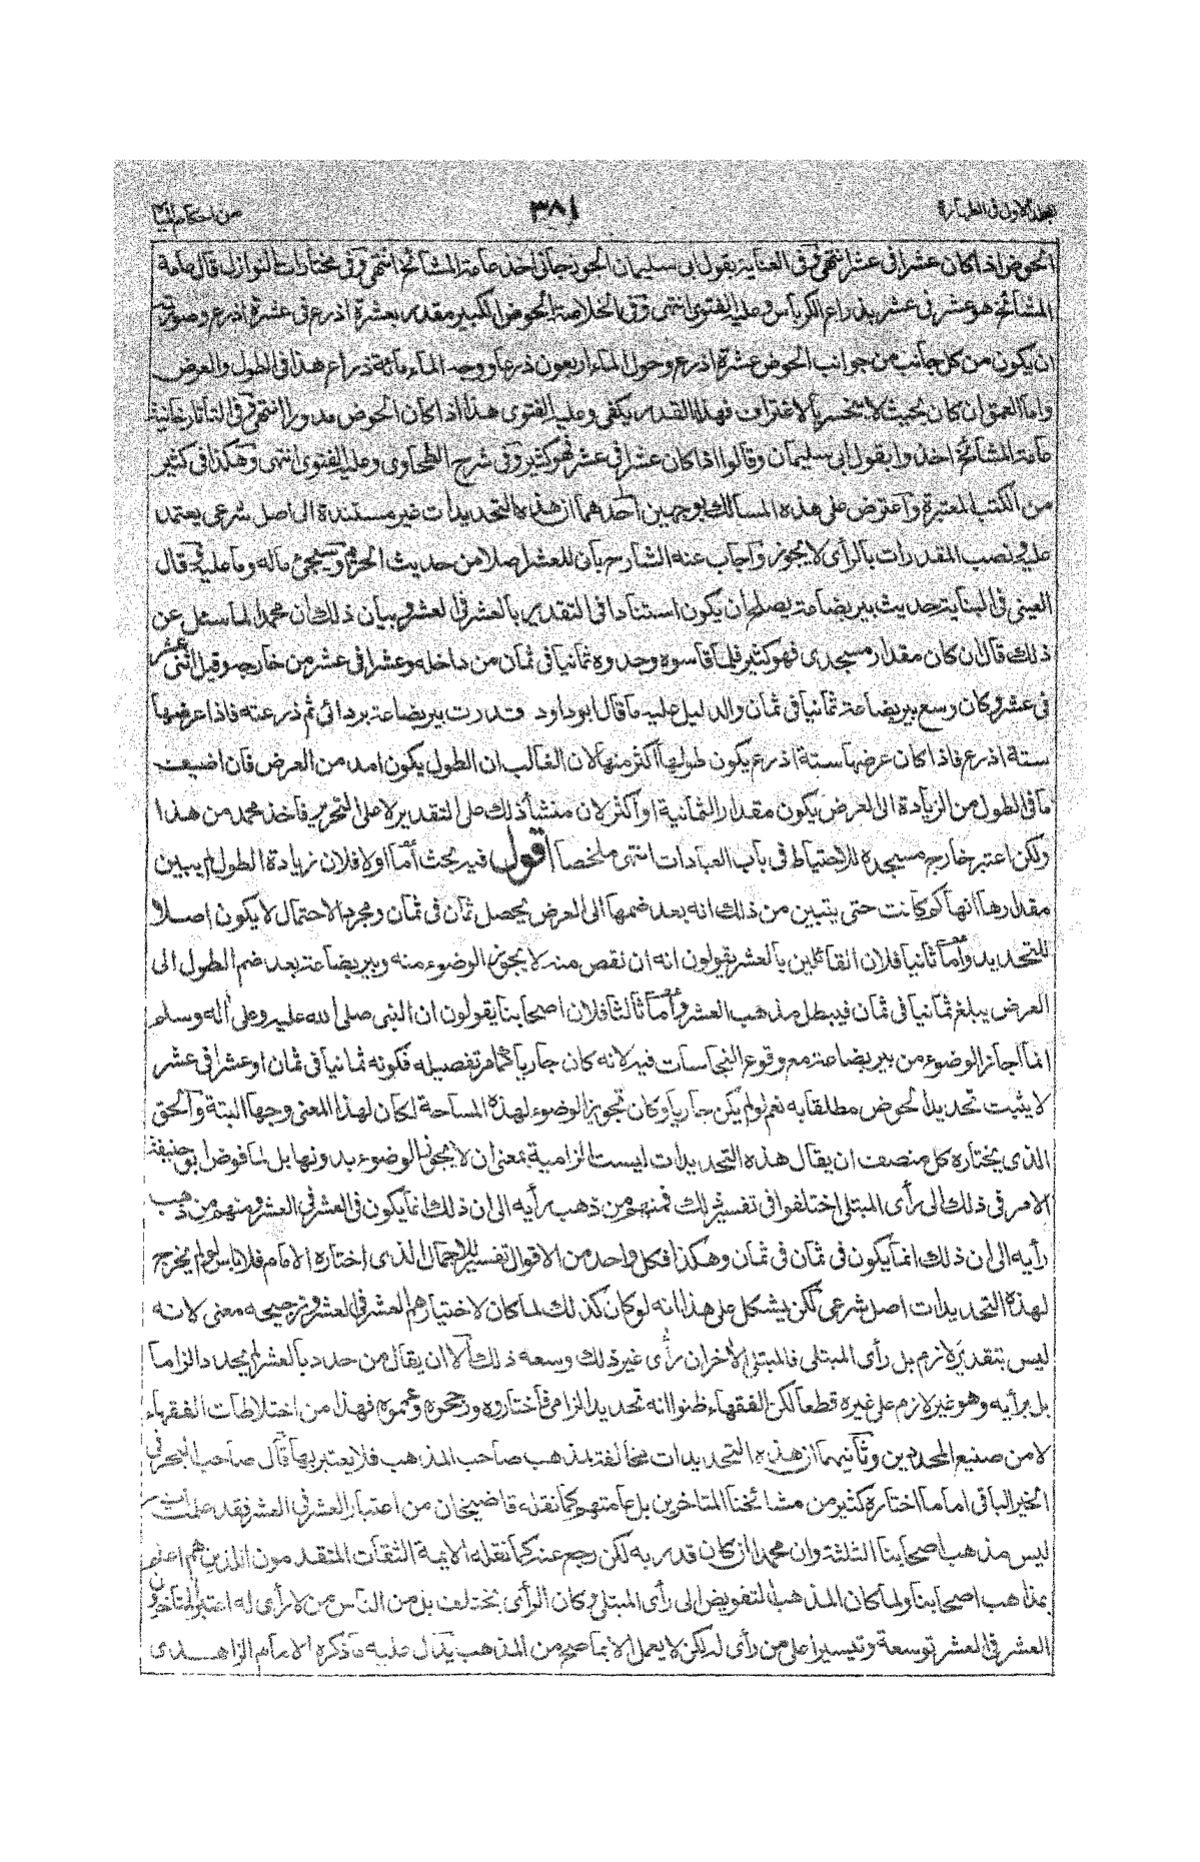 المجلد الاول فى الطهارة ٣٨١ من احكام المياه
الحوض اذا كان عشرا فى عشر انتهى وفى العناية بقول ابى سليمان الجوزجانى اخذ عامة المشائخ انتهى وفى مختارات النوازل قال عامة
المشائخ هو عشر فى عشر بذراع الكرباس وعليه الفتوى انتهى وفى الخلاصة الحوض الكبير مقدر بعشرة اذرع فى عشرة اذرع وصورته
ان يكون من كل جانب من جوانب الحوض عشرة اذرع وحول الماء اربعون ذرعا ووجه الماء مائة ذراع هذا فى الطول والعرض
واما العمق ان كان بحيث لا ينحسر بالاغتراف فهذا القدر يكفى وعليه الفتوى هذا اذا كان الحوض مدورا انتهى وفى التاتارخانية
عامة المشائخ اخذوا بقول ابى سليمان وقالوا اذا كان عشرا فى عشر فهو كثير وفى شرح الطحاوى وعليه الفتوى انتهى وهكذا فى كثير
من الكتب المعتبرة واعترض على هذه المسالك بوجهين احدهما ان هذه التحديدات غير مستندة الى اصل شرعى يعتمد
عليه ونصب المقدرات بالرأى لا يجوز واجاب عنه الشارح بان للعشر اصلا من حديث الحريم وسيجئ ماله وما عليه وقال
العينى فى البناية حديث بير بضاعة يصلح ان يكون استنادا فى التقدير بالعشر فى العشر وبيان ذلك ان محمدا لما سئل عن
ذلك قال ان كان مقدار مسجدى فهو كثير فلما قاسوه وجدوه ثمانيا فى ثمان من داخله وعشرا فى عشر من خارجه وقيل اثنى عشر
فى عشر وكان وسع بير بضاعة ثمانيا فى ثمان والدليل عليه ما قال ابو داود قدرت بير بضاعة بردائى ثم ذرعته فاذا عرضها
ستة اذرع فاذا كان عرضها ستة اذرع يكون طولها اكثر منها لان الغالب ان الطول يكون امد من العرض فان اضيفت
ما فى الطول من الزيادة الى العرض يكون مقدار الثمانية او اكثر لان منشأ ذلك على التقدير لا على التحرير فاخذ محمد من هذا
ولكن اعتبر خارج مسجده للاحتياط فى باب العبادات انتهى ملخصا اقول فيه بحث اما اولا فلان زيادة الطول لم يبين
مقدارها انها كم كانت حتى يتبين من ذلك انه بعد ضمها الى العرض يحصل ثمان فى ثمان ومجرد الاحتمال لا يكون اصلا
للتحديد واما ثانيا فلان القائلين بالعشر يقولون انه ان نقص منه لا يجوز الوضوء منه وبير بضاعة بعد ضم الطول الى
العرض يبلغ ثمانيا فى ثمان فيبطل مذهب العشر واما ثالثا فلان اصحابنا يقولون ان النبى صلى الله عليه وعلى اله وسلم
انما اجاز الوضوء من بير بضاعة مع وقوع النجاسات فيه لانه كان جاريا كما مر تفصيله فكونه ثمانيا فى ثمان او عشرا فى عشر
لا يثبت تحديد الحوض مطلقا به نعم لو لم يكن جاريا وكان تجويز الوضوء لهذه المساحة لكان لهذا المعنى وجها البتة والحق
الذى يختاره كل منصف ان يقال هذه التحديدات ليست الزامية بمعنى ان لا يجوز الوضوء بدونها بل لما فوض ابو حنيفة
الامر فى ذلك الى رأى المبتلى اختلفوا فى تفسير ذلك فمنهم من ذهب برأيه الى ان ذلك انما يكون فى العشر فى العشر ومنهم من ذهب
رأيه الى ان ذلك انما يكون فى ثمان فى ثمان وهكذا فكل واحد من الاقوال تفسير للاجمال الذى اختاره الامام فلا باس لو لم يخرج
لهذه التحديدات اصل شرعى لكن يشكل على هذا انه لو كان كذلك لما كان لاختيارهم العشر فى العشر وترجيحه معنى لانه
ليس بتقدير لازم بل رأى المبتلى فالمبتلى الاخر ان رأى غير ذلك وسعه ذلك الا ان يقال من حدد بالعشر لم يحدد الزاما
بل برأيه وهو غير لازم على غيره قطعا لكن الفقهاء ظنوا انه تحديد الزامى فاختاروه ورجحوه وعمموه فهذا من اختلاطات الفقهاء
لا من صنيع المحددين وثانيهما ان هذه التحديدات مخالفة لمذهب صاحب المذهب فلا يعتبر بها قال صاحب البحر فى
الخير الباقى اما ما اختاره كثير من مشائخنا المتاخرين بل عامتهم كما نقله قاضيخان من اعتبار العشر فى العشر فقد علمت انه
ليس مذهب اصحابنا الثلثة وان محمدا وان كان قدر به لكن رجع عنه كما نقله الايمة الثقات المتقدمون الذين هم اعلم
بمذاهب اصحابنا ولما كان المذهب التفويض الى رأى المبتلى وكان الرأى يختلف بل من الناس من لا رأى له اعتبر المتاخرون
العشر فى العشر توسعة وتيسيرا على من رأى له لكن لا يعمل الا بما صح من المذهب يدل عليه ما ذكره الامام الزاهدى